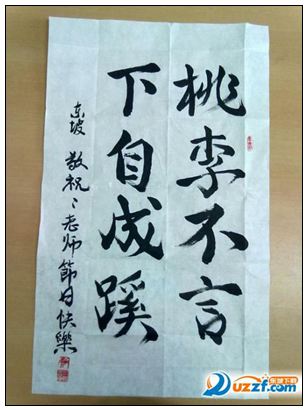 桃李不言
下自成蹊
东坡 敬祝
老师節日快樂
东坡下载
uzzf.com